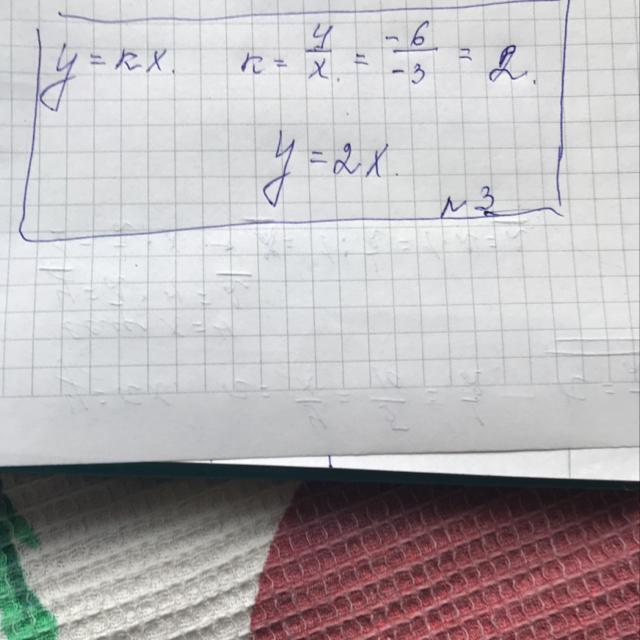 y = kx. k = y/x = -6/-3 = 2.
y = 2x.
N 3